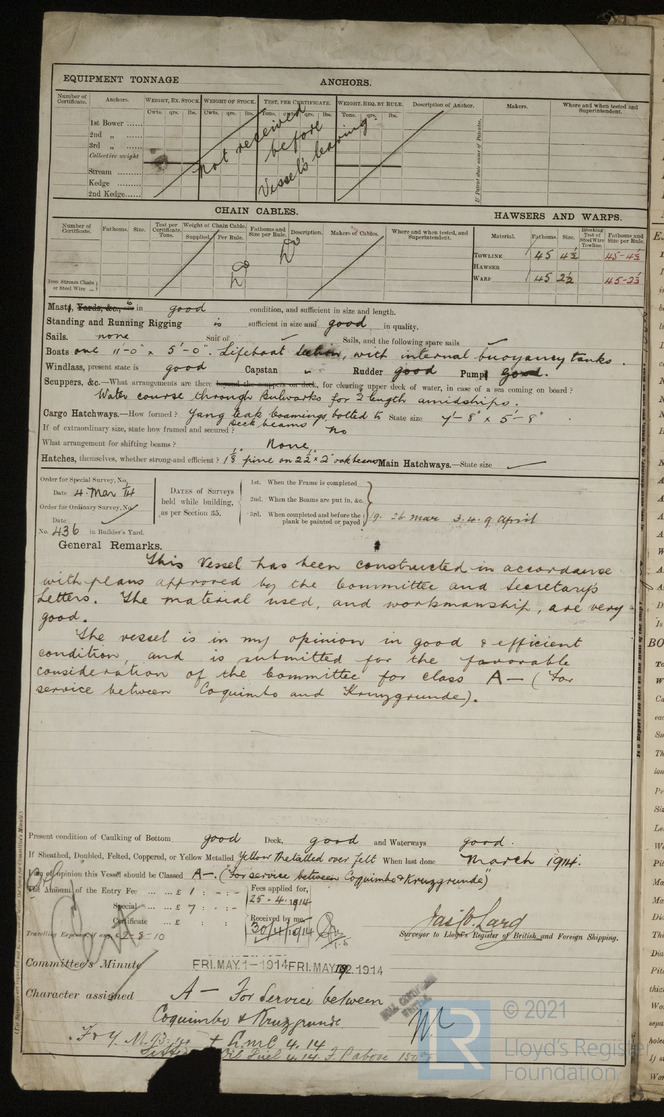 EQUIPMENT TONNAGE ANCHORS.
Number of Certificate. Anchors. WEIGHT, EX. STOCK. WEIGHT OF STOCK. TEST, PER CERTIFICATE. WEIGHT, REQ. BY RULE. Description of Anchor. Makers. Where and when tested and Superintendent.
Cwts. qrs. lbs. Cwts. qrs. lbs. Tons. Cwts. qrs. lbs.
1st Bower
2nd „
3rd „
Collective weight
Stream
Kedge
2nd Kedge
not received before Vessel's leaving.
CHAIN CABLES. HAWSERS AND WARPS.
Number of Certificate. Fathoms. Size. Test per Certificate. Tons. Weight of Chain Cable. Supplied. Per Rule. Fathoms and Size per Rule. Description. Makers of Cables. Where and when tested, and Superintendent. Material. Fathoms. Size. Breaking Test of Steel Wire Towline. Fathoms and Size per Rule.
TOWLINE 45 4½ 45-4½
HAWSER
WARP 45 2½ 45-2½
Do Do
Iron Stream Chain or Steel Wire
Masts, Yards, &c., in good condition, and sufficient in size and length.
Standing and Running Rigging is sufficient in size and good in quality.
Sails. none Suit of Sails, and the following spare sails
Boats one 11'-0" x 5'-0" Lifeboat with internal buoyancy tanks.
Windlass, present state is good Capstan „ Rudder good Pumps good.
Scuppers, &c.—What arrangements are there beyond the scuppers on deck, for clearing upper deck of water, in case of a sea coming on board?
Water course through Bulwarks for 2 length amidships.
Cargo Hatchways.—How formed? teak coamings, bolted to deck beams State size 7'-8" x 5'-8"
If of extraordinary size, state how framed and secured? no
What arrangement for shifting beams? None
Hatches, themselves, whether strong and efficient? 1⅛" pine on 2½" x 2" oak beams Main Hatchways.—State size
Order for Special Survey, No.
Date 4. Mar 14
Order for Ordinary Survey, No.
Date
No. 436 in Builder's Yard.
DATES of Surveys held while building, as per Section 35.
1st. When the Frame is completed
2nd. When the Beams are put in, &c.
3rd. When completed and before the plank be painted or payed
9. 26 mar 3. 4. 9 April
General Remarks.
This Vessel has been constructed in accordance
with plans approved by the Committee and Secretary's
Letters. The material used, and workmanship, are very
good.
The vessel is in my opinion in good & efficient
condition, and is submitted for the favorable
consideration of the Committee for class A— (For
service between Coquimbo and Kruzgrunde).
Present condition of Caulking of Bottom good Deck, good and Waterways good.
If Sheathed, Doubled, Felted, Coppered, or Yellow Metalled Yellow Metalled over felt When last done March 1914.
opinion this Vessel should be Classed A—. (For service between Coquimbo & Kruzgrunde")
The Amount of the Entry Fee £ 1 : - : -
Special £ 7 : - : -
Certificate £
Travelling Expenses, if any £ 2-8-10
Fees applied for, 25-4-1914
Received by me, 30/4/1914
Jas. C. Lard
Surveyor to Lloyd's Register of British and Foreign Shipping.
Committee's Minute FRI. MAY. 1-1914 FRI. MAY 1914
Character assigned A— For Service between
Coquimbo & Kruzgrunde.
F & Y. M. + L.M.C. 4.14
Oil Fuel 4.14 F.P. above 150°F
© 2021
Lloyd's Register
Foundation